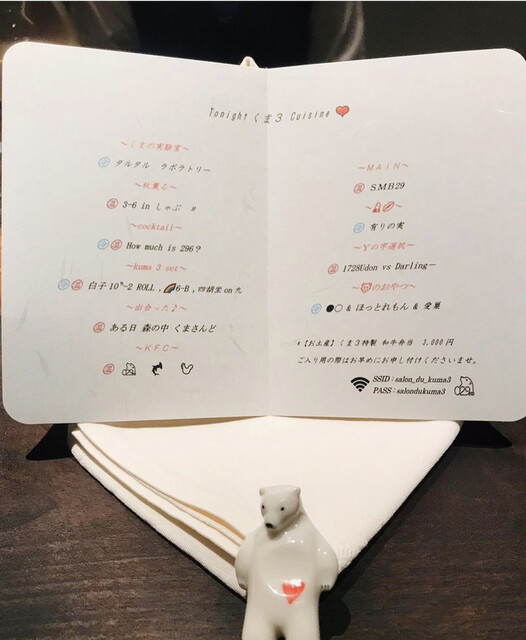 Tonight くま3 Cuisine
～くまの実験室～
冷 タルタル ラボラトリー
～秋薫る～
温 3-6 in しゃぶ
～cocktail～
冷 温 How much is 296?
～kuma 3 set～
冷 温 白子10%-2 ROLL , 6-B , 四胡堂 on 九
～出会った♪～
温 ある日 森の中 くまさんど
～KFC～
温
～MAIN～
温 SMB29
冷 有りの実
～Yの字選択～
温 1728Udon vs Darling－
～のおやつ～
冷 ●○ & ほっとれもん & 愛巣
*【お土産】くま3特製 和牛弁当 3,000円
ご入り用の際はお早めにお申し付けくださいませ。
SSID：salon_du_kuma3
PASS：salondukuma3